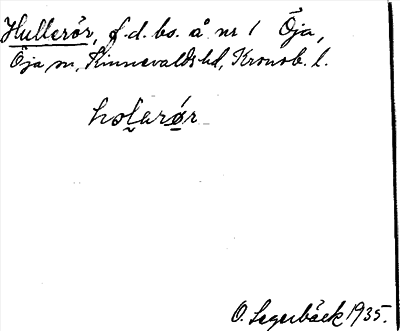 Hullerör, f.d. bs. å nr 1 Öja,
Öja sn, Kinnevalds hd, Kronob. l.
O. Segerbäck 1935.